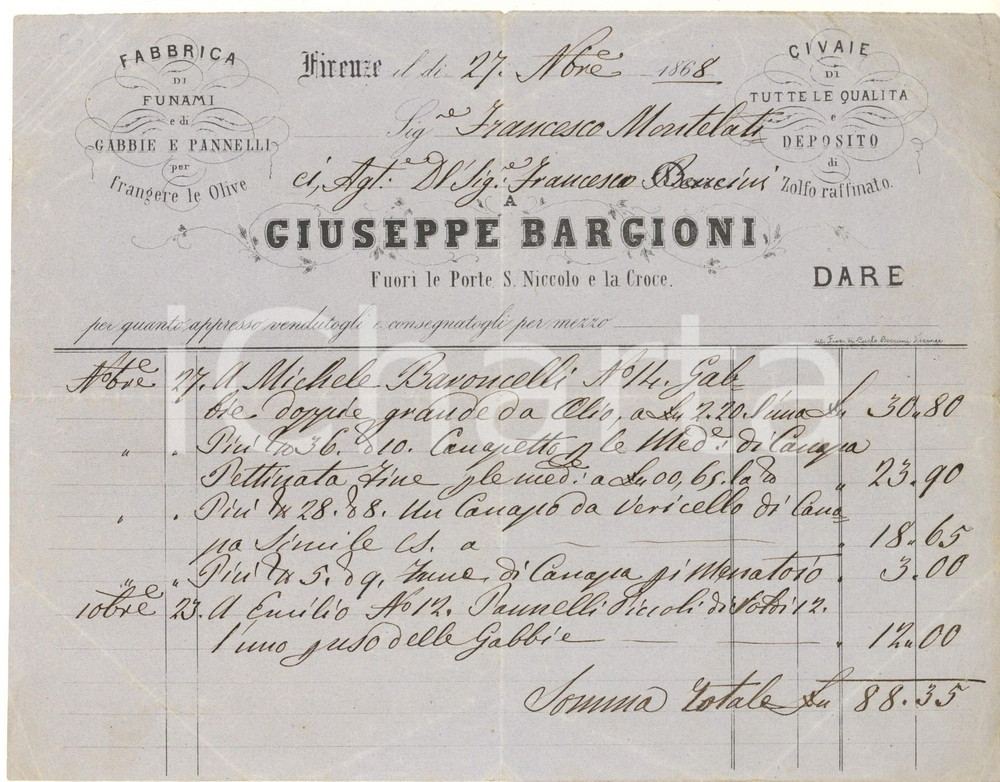 FABBRICA
DI
FUNAMI
e di
GABBIE E PANNELLI
per
frangere le Olive
Firenze il di 27. Nbre 1868
CIVAIE
DI
TUTTE LE QUALITA
e
DEPOSITO
di
Zolfo raffinato.
Sigre Francesco Montelati
Agte Dl Sigre Francesco
A
GIUSEPPE BARGIONI
Fuori le Porte S. Niccolo e la Croce.
DARE
per quanto appresso vendutogli e consegnatogli per mezzo
Nbre 27. A Michele Baroncelli No 14. Gab
bie doppie grande da Olio, a Ln 2.20. l'una Ln 30.80
" " Più 36. 10. Canapetto p le Mede: di Canapa
Pettinata Fine ple mede: a Ln 00,65. la " 23.90
" " Più 28. 8. Un Canapo da Vericello di Cana
pa Simile Cs. a " 18.65
" " Più 5. 9. Fune di Canapa Menatoio " 3.00
10bre 23. A Emilio No 12. Pannelli Piccoli di 12.
l'uno p uso delle Gabbie " 12.00
Somma Totale Ln 88.35
iCharta